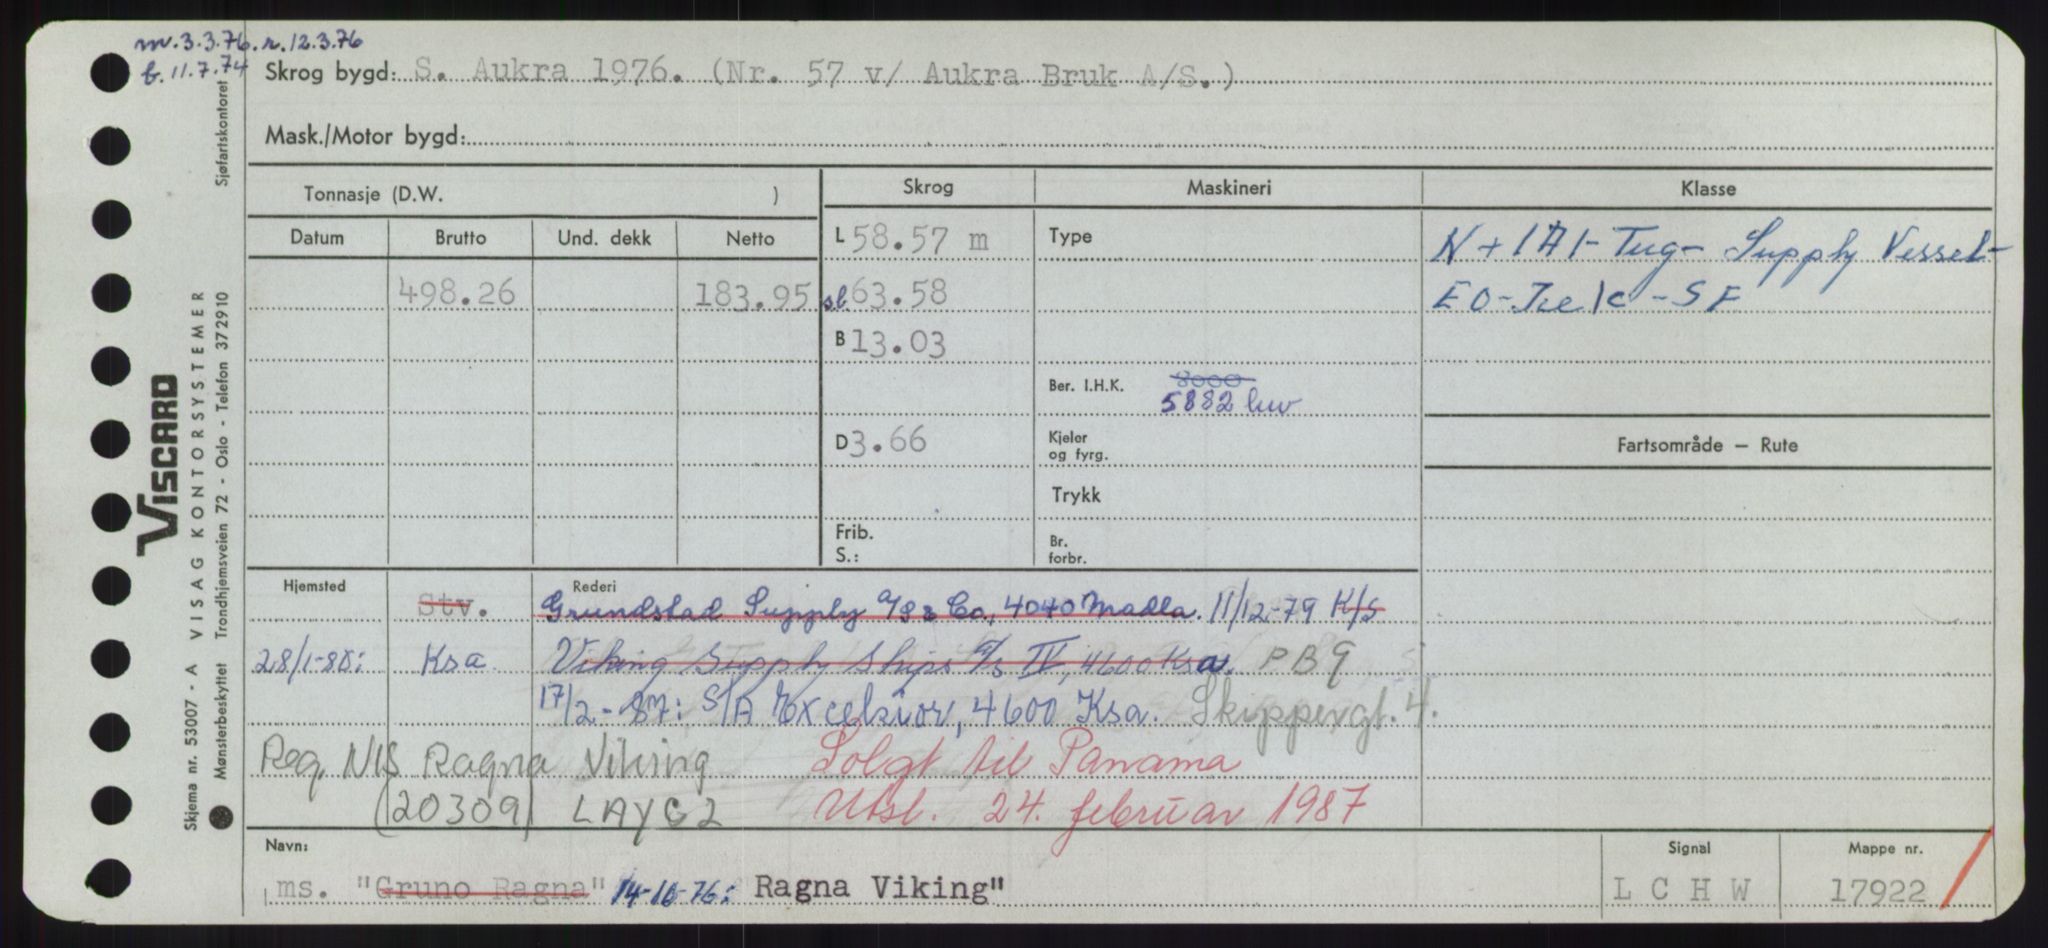 m. 3.3.76. r. 12.3.76
b. 11.7.74
Skrog bygd: S. Aukra 1976. (Nr. 57 v/ Aukra Bruk A/S.)
Mask./Motor bygd:
Tonnasje (D.W. )
Skrog
Maskineri
Klasse
Datum Brutto Und. dekk Netto
498.26 183.95
L 58.57 m
sb. 63.58
B 13.03
D 3.66
Frib.
S.:
Type
Ber. I.H.K. 8000
5882 kw
Kjeler
og fyrg.
Trykk
Br.
forbr.
N + 1A1 - Tug - Supply Vessel -
EO - Ice/c - SF
Fartsområde — Rute
Hjemsted Rederi
Stv. Grundstad Supply A/S & Co., 4040 Madla. 11/12-79 K/S
28/1-80: Ksa Viking Supply Ships A/S IV, 4600 Ksa. PB 9
17/2-87: S/A Excelsior, 4600 Ksa. Skippergt. 4.
Reg. NIS Ragna Viking Solgt til Panama
(20309) LAYG2 Utsl. 24. februar 1987
Navn:
ms. "Gruno Ragna" 14-10-76: "Ragna Viking"
Signal
L C H W
Mappe nr.
17922
VISCARD
Skjema nr. 53007 - A VISAG KONTORSYSTEMER
Mønsterbeskyttet Trondhjemsveien 72 - Oslo - Telefon 372910
Sjøfartskontoret